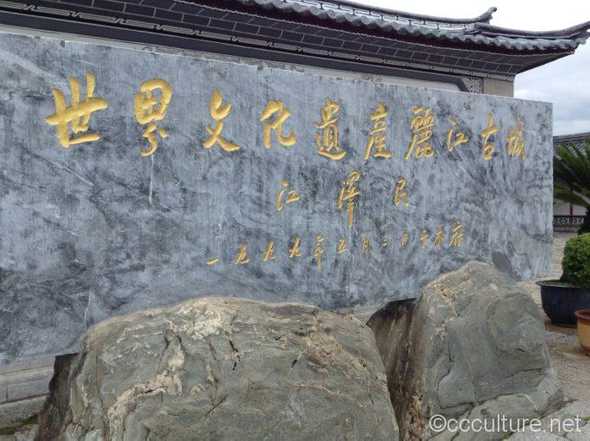 世界文化遺產麗江古城
江澤民
一九九九年五月二日于木府
©ccculture.net